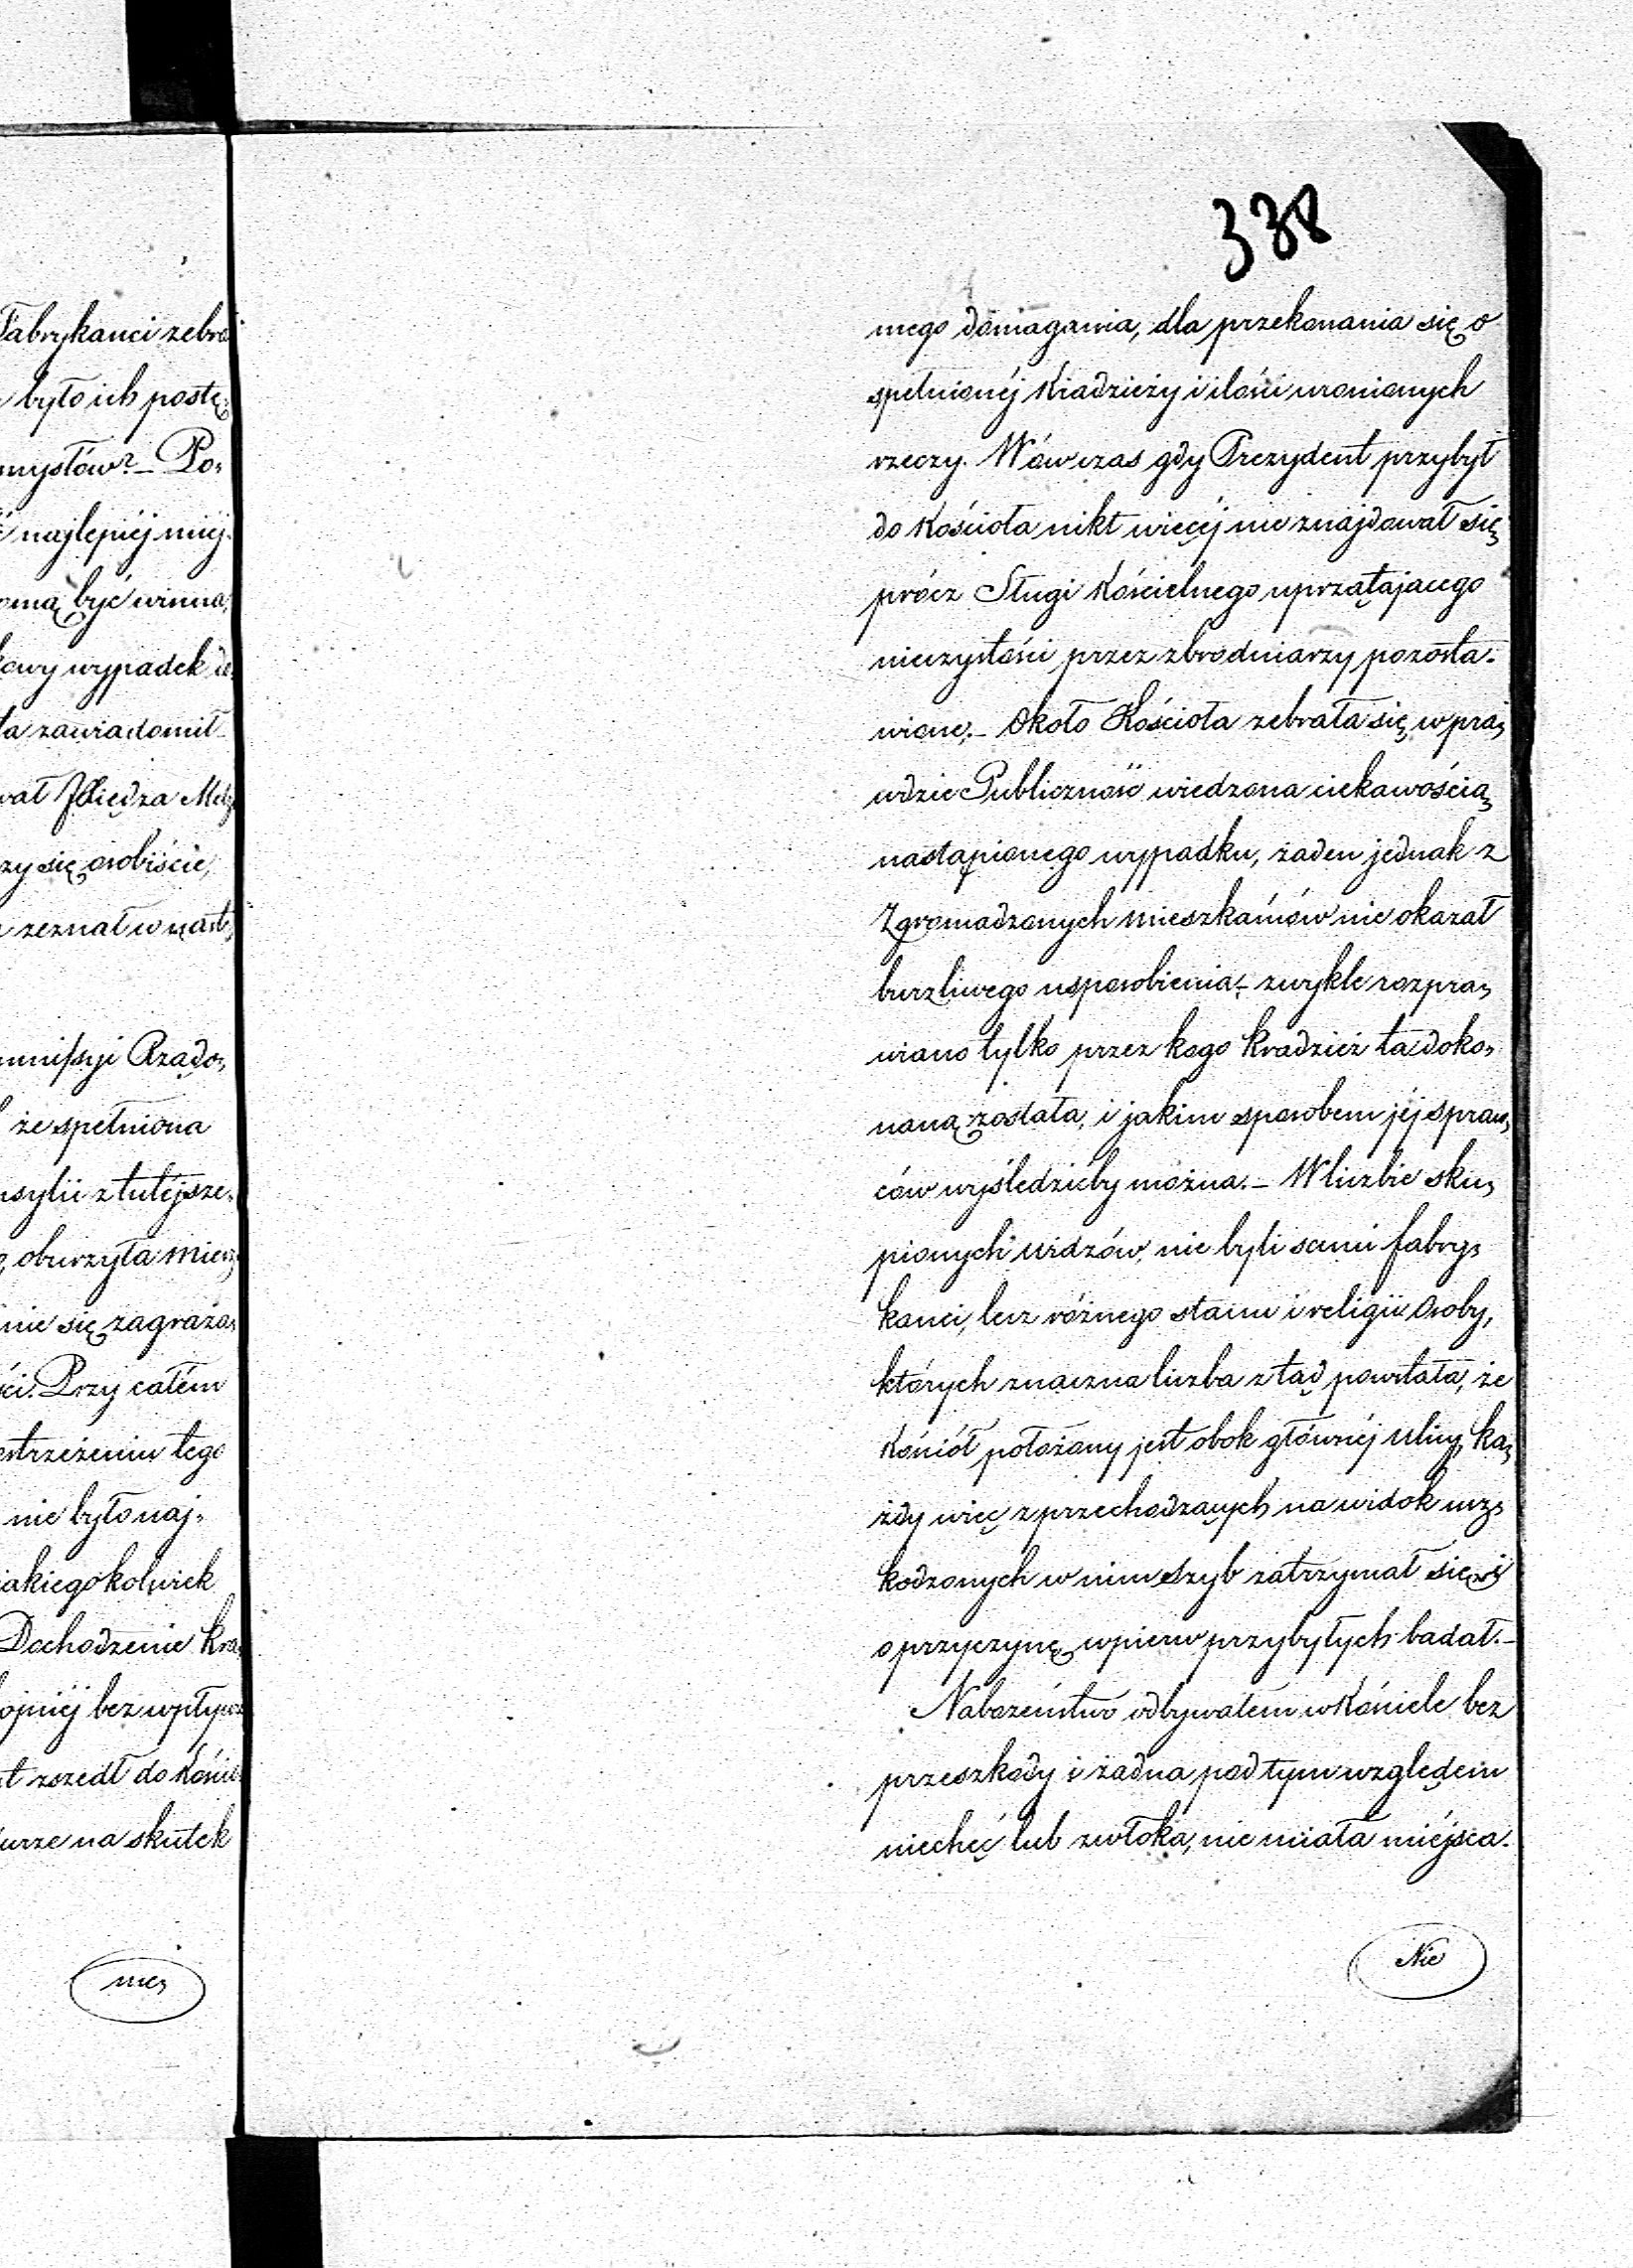 Fabrykanci zebra
było ich postę„
mysłów?_ Po„
najlepiéj miéj„
omą być winna,
owy wypadek
ła zawiadomił_
wał Xiędza
zy się osobiście,
zeznał w nast„
missyi Rządo„
że spełniona
nsylii z tutéjsze„
oburzyła miesz„
nie się zagraża„
ci. Przy całém
ostrzeżeniu tego
nie było naj„
jakiegokolwiek
Dochodzenie kra„
ojniéj bez wpływ
zszedł do Kościo
na skutek
me„
338
mego domagania, dla przekonania się o
spełnionéj Kradzieży i ilości uronionych
rzeczy. Wówczas gdy Prezydent przybył
do Kościoła nikt więcéj nie znajdował się
prócz Sługi Kościelnego uprzątającego
nieczystości przez zbrodniarzy pozosta„
wione._ Około Kościoła zebrała się w pra„
wdzie Publiczność wiedzona ciekawością
nastąpionego wypadku, żaden jednak z
Zgromadzonych mieszkańców nie okazał
burzliwego usposobienia,_ zwykle rozpra„
wiano tylko przez kogo kradzież ta doko„
naną została, i jakim sposobem jéj spraw„
ców wyśledzićby można._ W liczbie sku„
pionych widzów, nie byli sami fabry„
kanci, lecz różnego stanu i religii Osoby,
których znaczna liczba ztąd powstała, że
Kościół położony jest obok głównéj ulicy, ka„
żdy więc z przechodzących, na widok usz„
kodzonych w nim szyb zatrzymał się i
o przyczynę wpierw przybyłych badał._
Nabożeństwo odbywałem w Kościele bez
przeszkody i żadna pod tym względem
niechęć lub zwłoka, nie miała miéjsca.
Nie